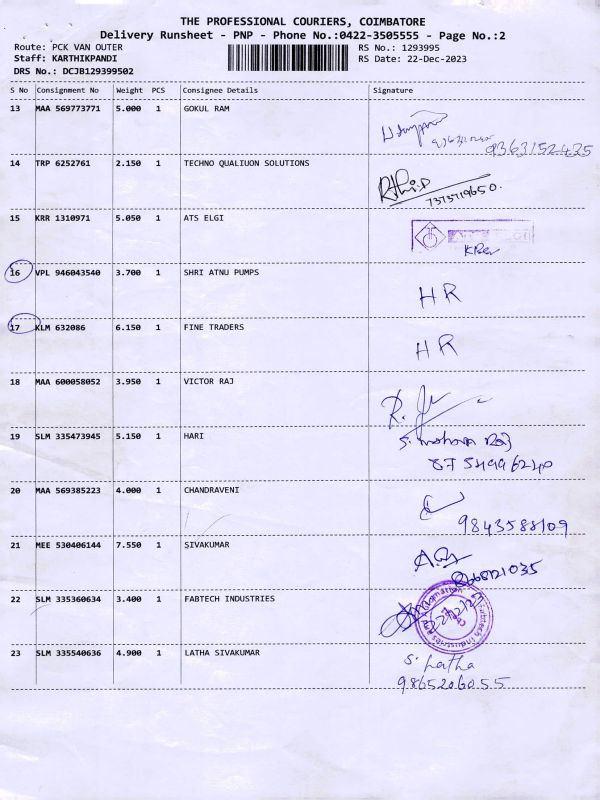 THE PROFESSIONAL COURIERS, COIMBATORE
Delivery Runsheet - PNP - Phone No.:0422-3505555 - Page No.:2
Route: PCK VAN OUTER RS No.: 1293995
Staff: KARTHIKPANDI RS Date: 22-Dec-2023
DRS No.: DCJB129399502
S No Consignment No Weight PCS Consignee Details Signature
13 MAA 569773771 5.000 1 GOKUL RAM
9363152435
14 TRP 6252761 2.150 1 TECHNO QUALIUON SOLUTIONS
7373719650.
15 KRR 1310971 5.050 1 ATS ELGI
16 VPL 946043540 3.700 1 SHRI ATNU PUMPS
HR
17 KLM 632086 6.150 1 FINE TRADERS
HR
18 MAA 600058052 3.950 1 VICTOR RAJ
19 SLM 335473945 5.150 1 HARI
S. Mohan Raj
8754996240
20 MAA 569385223 4.000 1 CHANDRAVENI
9843588109
21 MEE 530406144 7.550 1 SIVAKUMAR
22 SLM 335360634 3.400 1 FABTECH INDUSTRIES
Fabtech Industries
23 SLM 335540636 4.900 1 LATHA SIVAKUMAR
S. Latha
9865206055